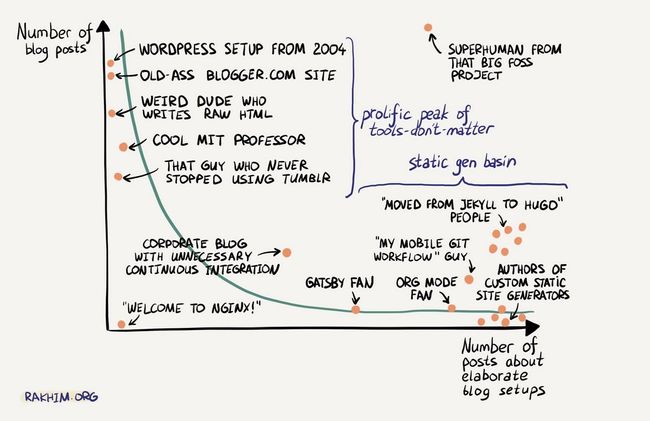 Number of
blog posts
WORDPRESS SETUP FROM 2004
OLD-ASS BLOGGER.COM SITE
WEIRD DUDE WHO
WRITES RAW HTML
COOL MIT PROFESSOR
THAT GUY WHO NEVER
STOPPED USING TUMBLR
prolific peak of
tools-don't-matter
SUPERHUMAN FROM
THAT BIG FOSS
PROJECT
static gen basin
"MOVED FROM JEKYLL TO HUGO"
PEOPLE
CORPORATE BLOG
WITH UNNECESSARY
CONTINUOUS INTEGRATION
"MY MOBILE GIT
WORKFLOW" GUY
GATSBY FAN
ORG MODE
FAN
AUTHORS OF
CUSTOM STATIC
SITE GENERATORS
"WELCOME TO NGINX!"
Number of
posts about
elaborate
blog setups
RAKHIM.ORG